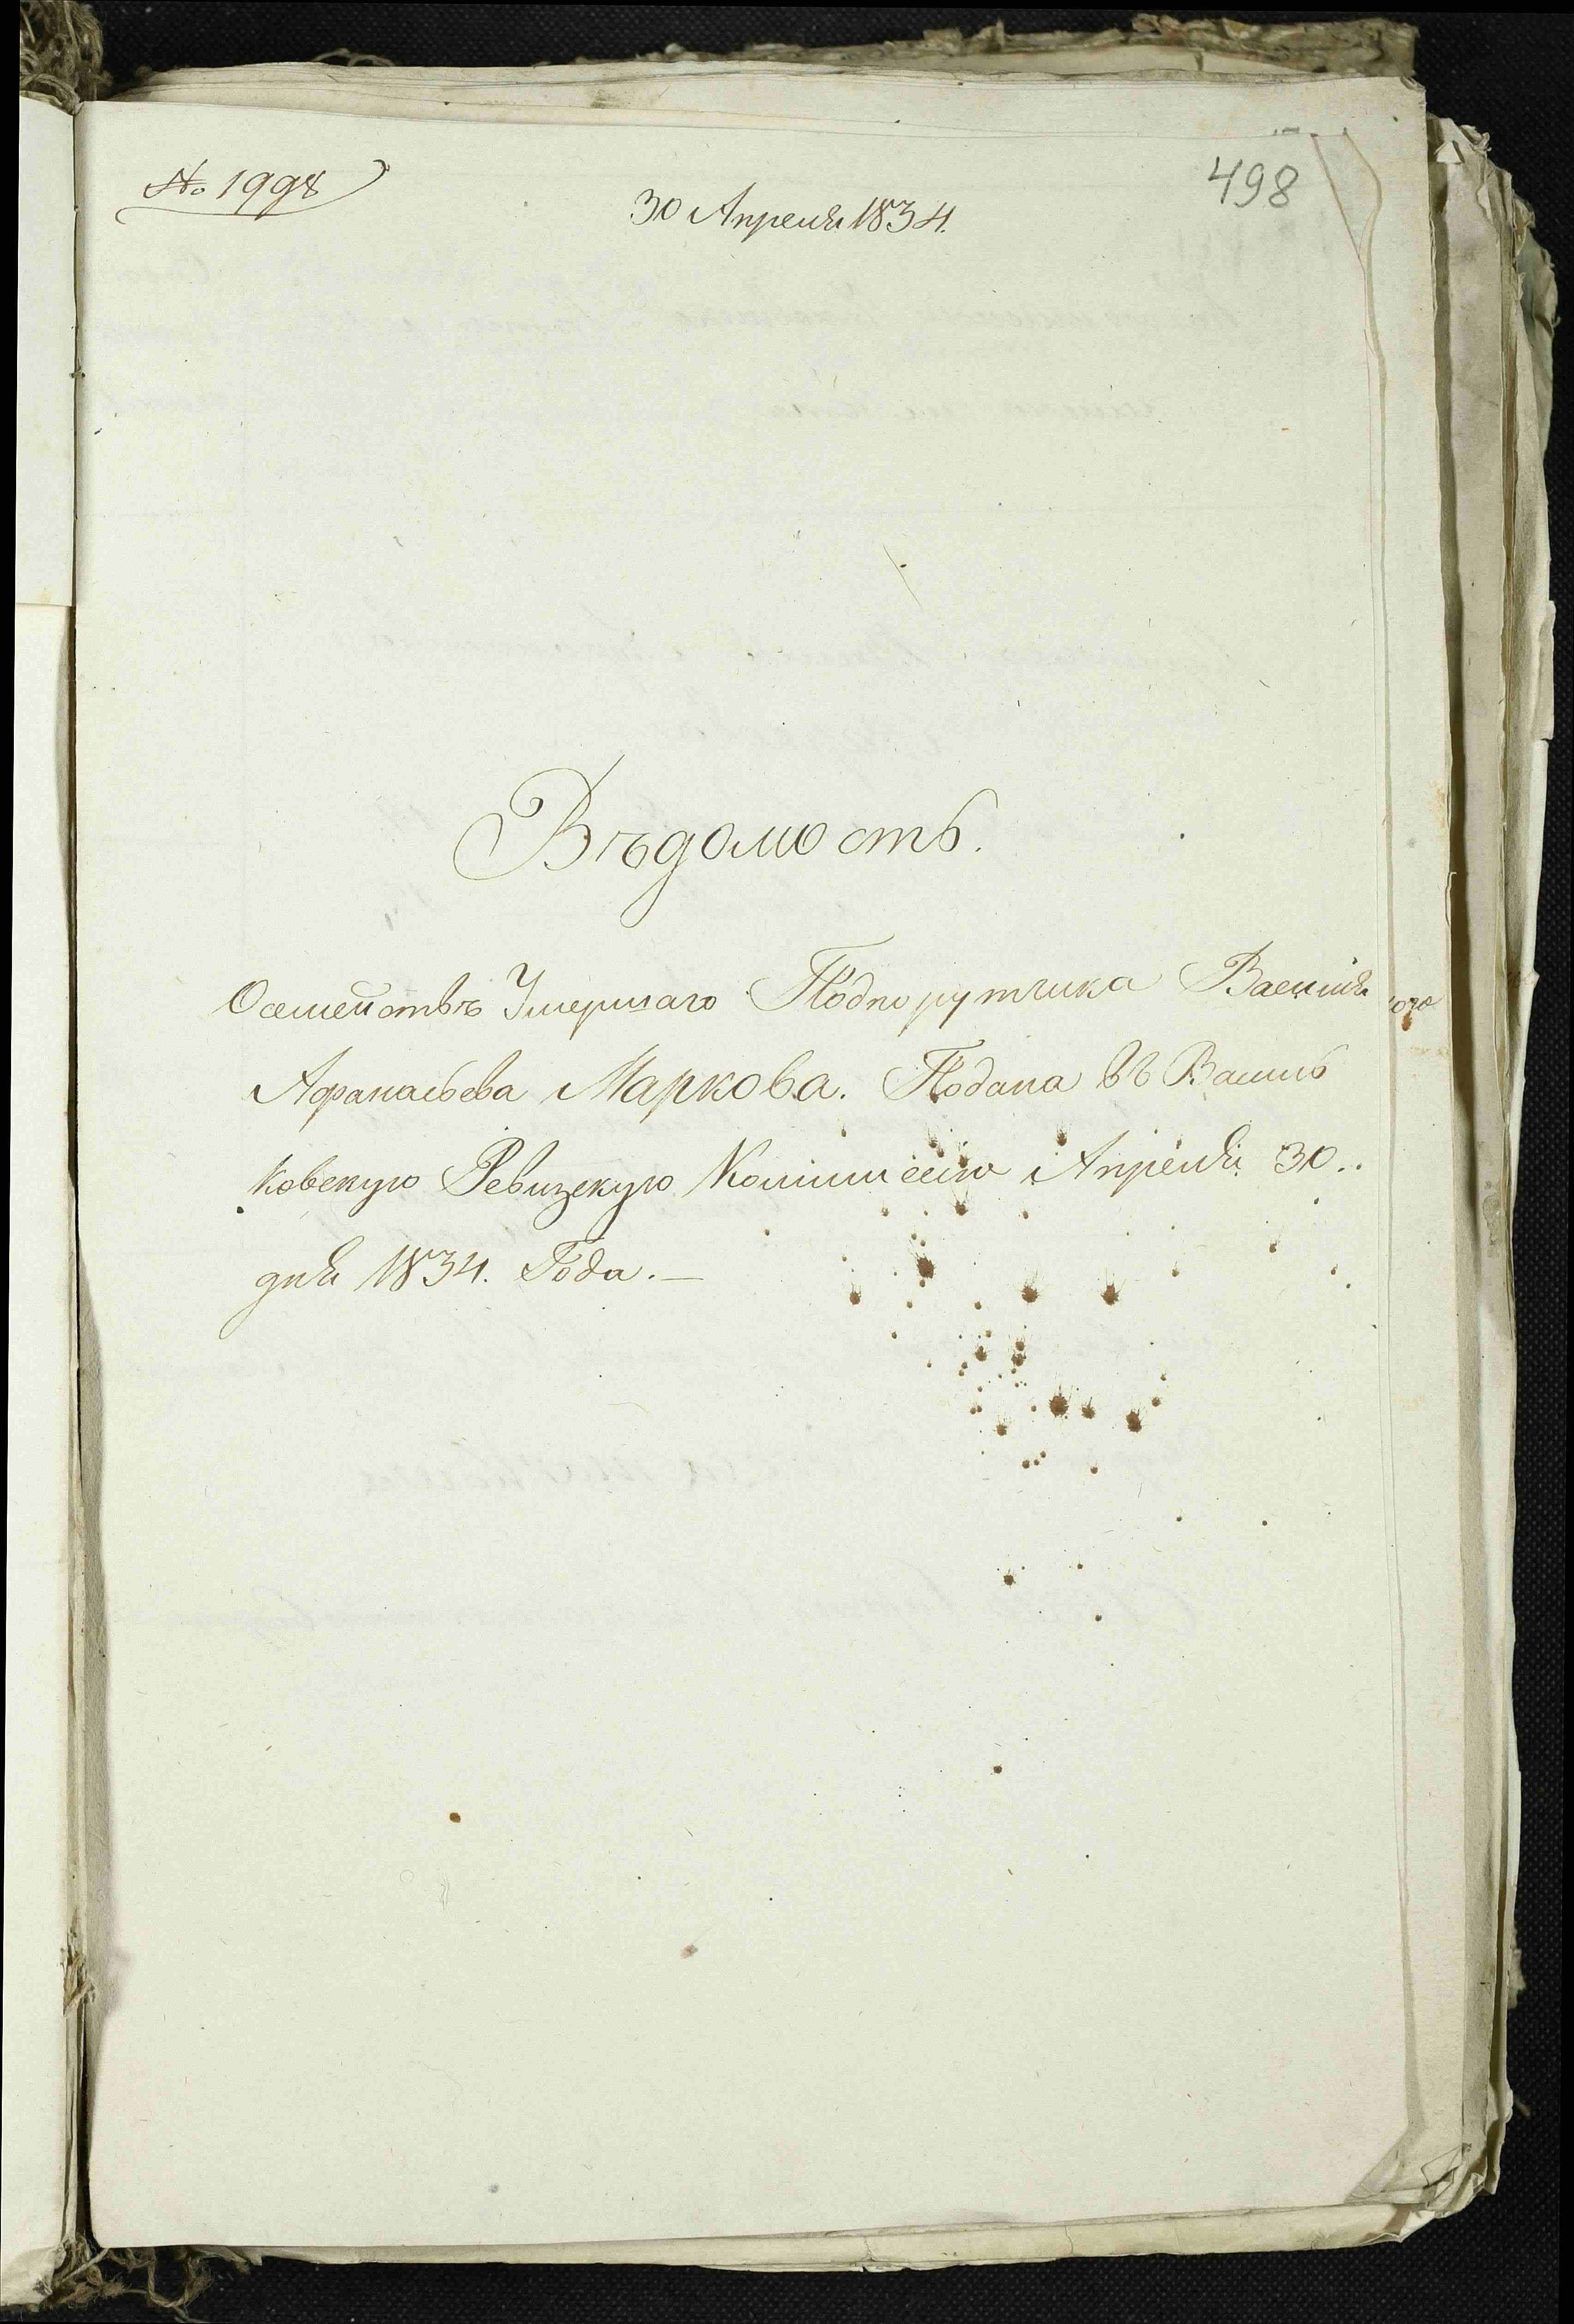 № 1998
498
30 Апреля 1834.
Вѣдомость.
Осемействѣ Умершаго Подпорутчика Василія
Афанасьева Маркова. Подана въ Василь
ковскую Ревизскую Коммиссію Апреля 30..
дня 1834. Года.—